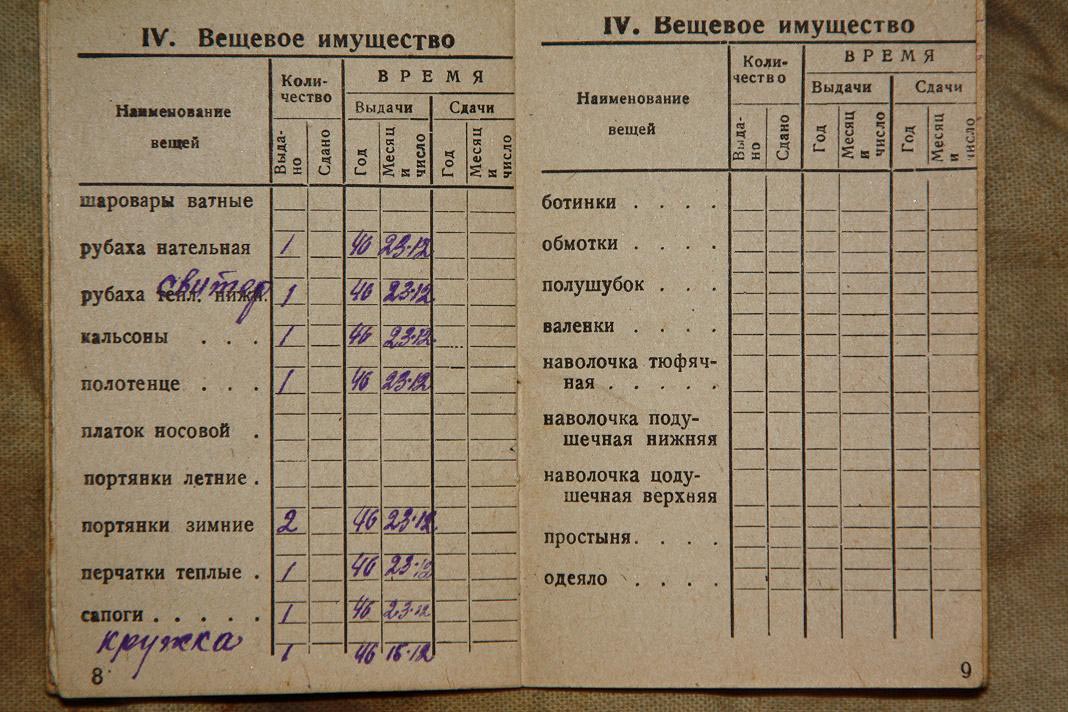 IV. Вещевое имущество
Наименование вещей
Коли-
чество
ВРЕМЯ
Выдачи
Сдачи
Выда-
но
Сдано
Год
Месяц и число
Год
Месяц и число
шаровары ватные
рубаха нательная 1 46 23-12
свитер
рубаха тепл. нижн. 1 46 23-12
кальсоны . . . 1 46 23-12
полотенце . . . 1 46 23-12
платок носовой .
портянки летние .
портянки зимние 2 46 23-12
перчатки теплые . 1 46 23-12
сапоги . . . . . 1 46 23-12
кружка 1 46 18-12
8
IV. Вещевое имущество
Наименование
вещей
Коли-
чество
ВРЕМЯ
Выдачи
Сдачи
Выда-
но
Сдано
Год
Месяц и число
Год
Месяц и число
ботинки . . . .
обмотки . . . .
полушубок . . .
валенки . . . .
наволочка тюфяч-
ная . . . . .
наволочка поду-
шечная нижняя
наволочка цоду-
шечная верхняя
простыня. . . .
одеяло . . . .
9